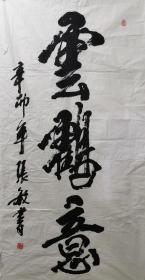 雲鶴意
辛卯年張敏書